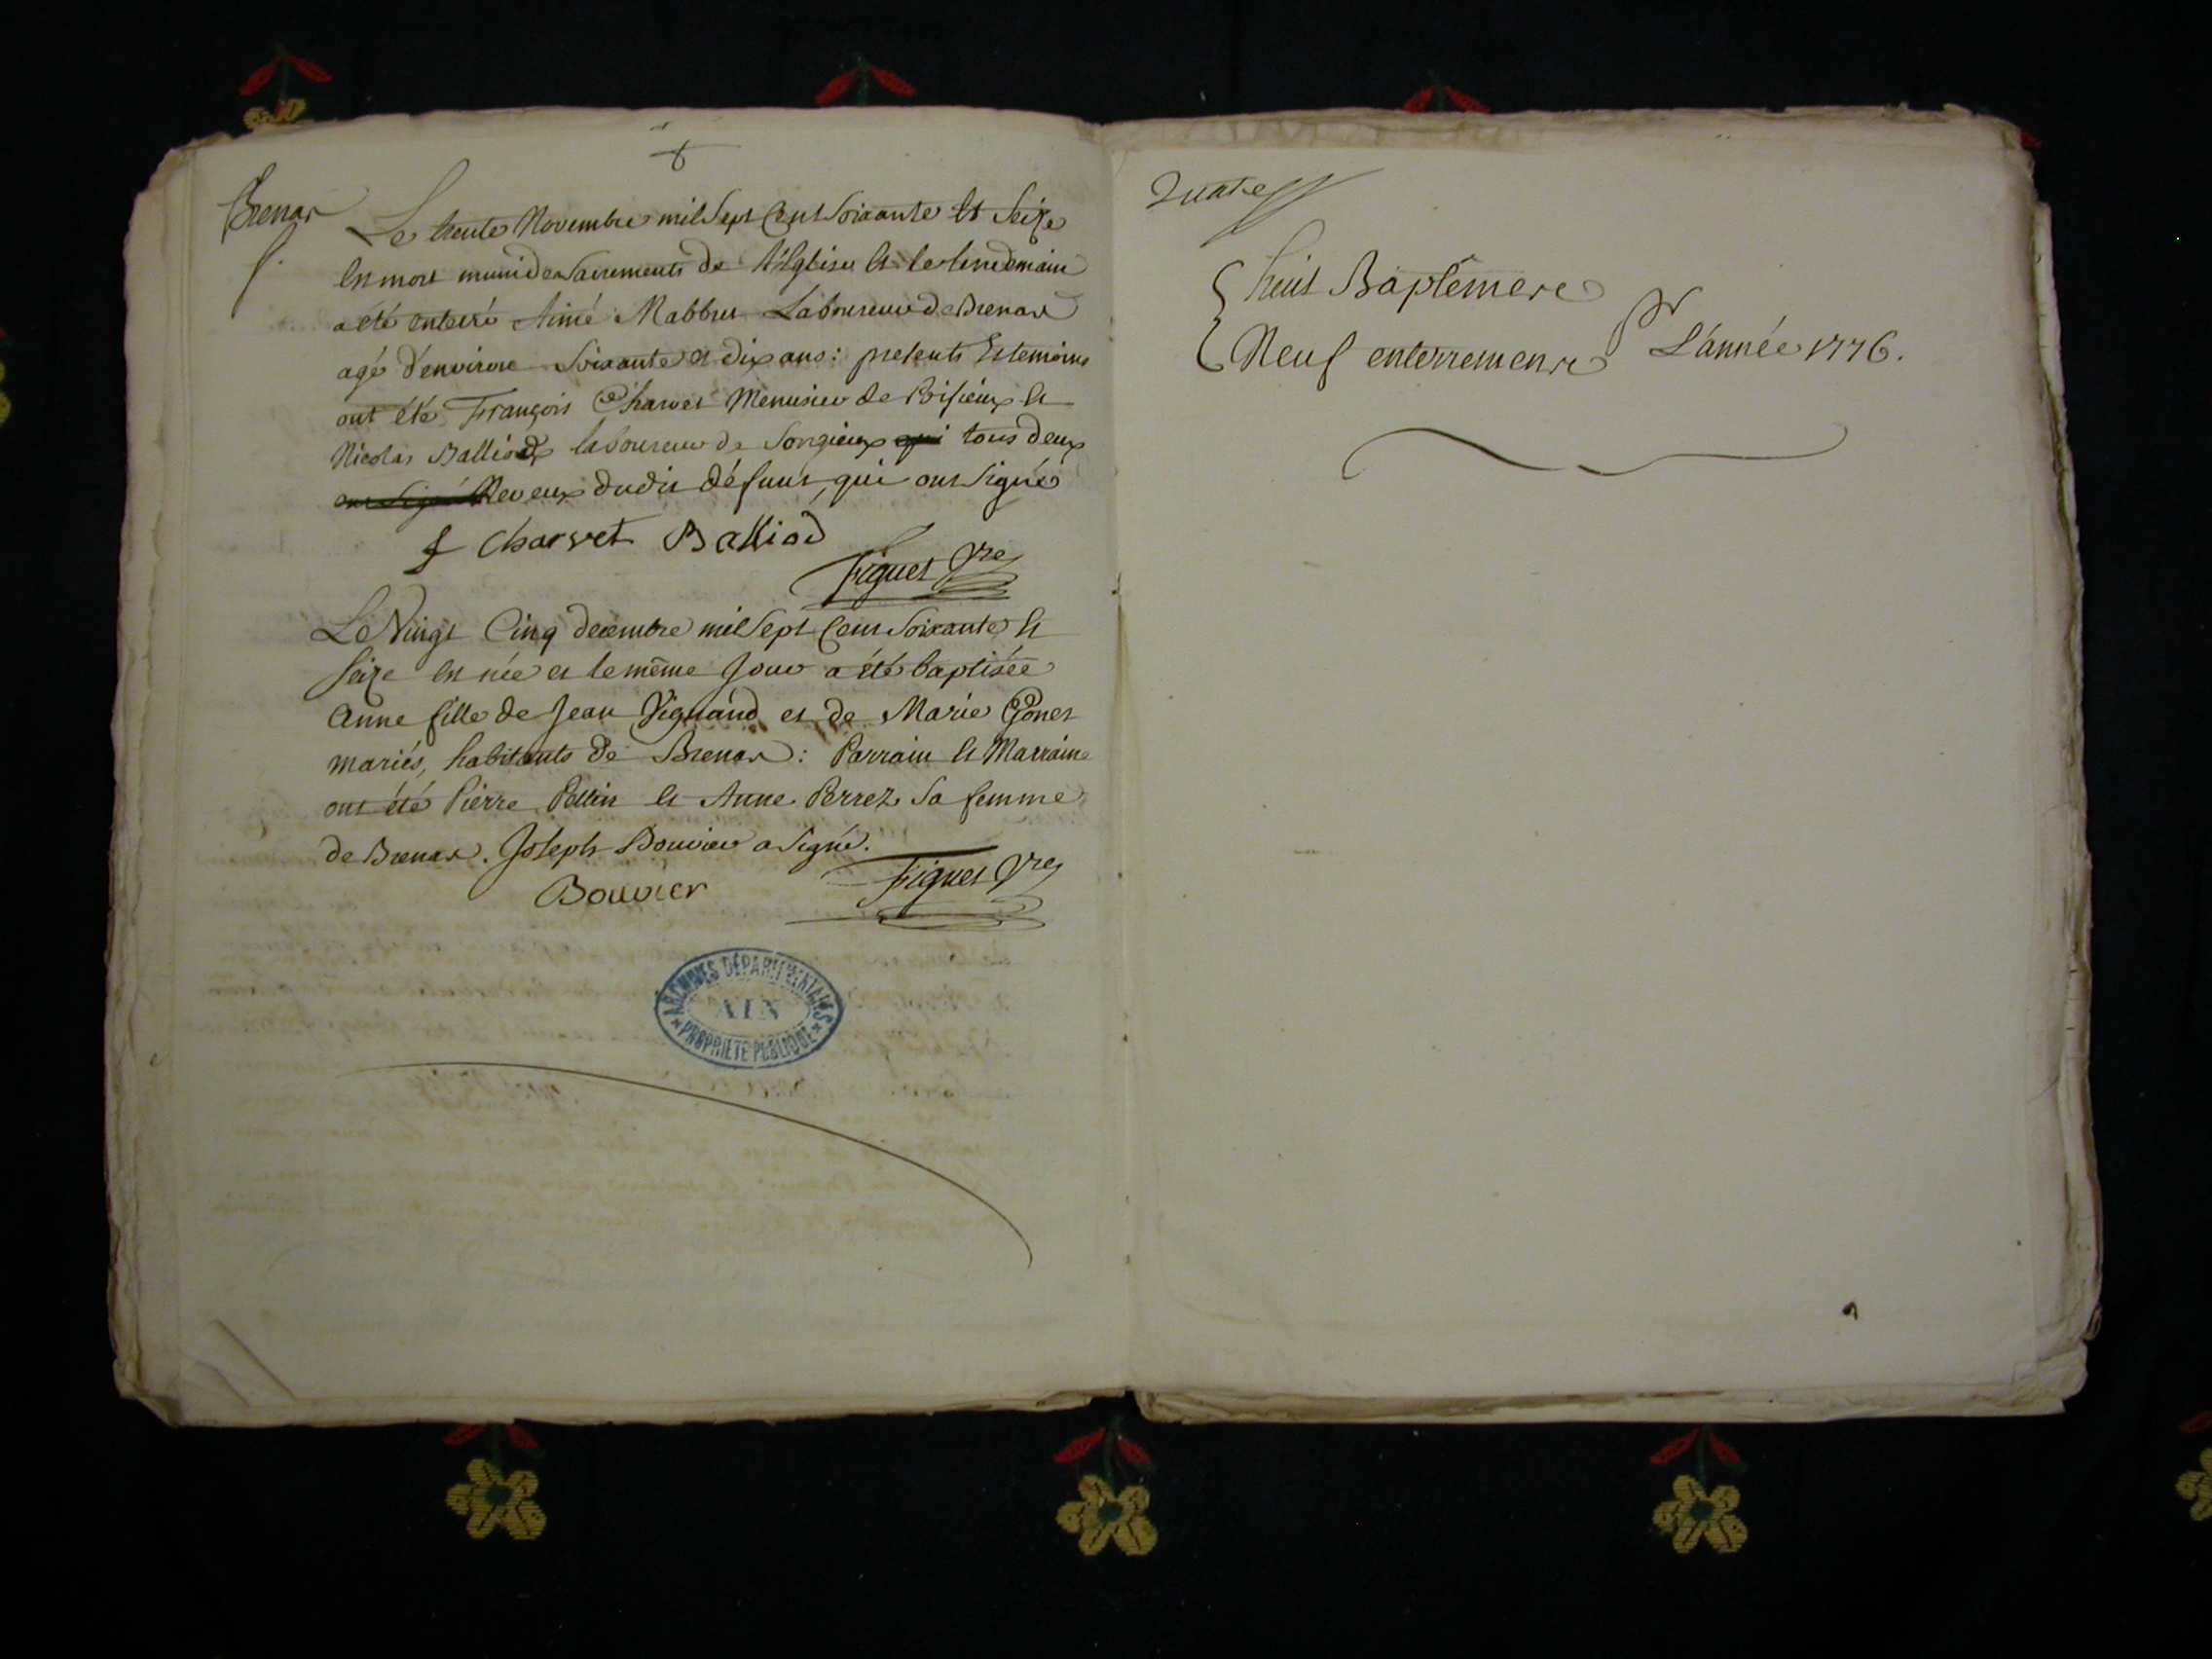 Brenaz
Le trente Novembre mil Sept Cent Soixante et Seize
est mort muni des Sacrements de l'Eglise et le lendemain
a été enterré Aimé Mabbru Laboureur de Brenaz
agé d'environ Soixante et dix ans: presents et temoins
ont été François Charvet Menuisier de Poisieux et
Nicolas Balliod laboureur de Songieux qui tous deux
ont signé Neveux dudit défunt, qui ont signé
f Charvet Balliod
Figuet Ptre
Le Vingt Cinq decembre mil Sept Cent Soixante et
Seize est née et le même Jour a été baptisée
Anne fille de Jean Vignand et de Marie Gonet
mariés, habitants de Brenaz: Parrain et Marraine
ont été Pierre Pellin et Anne Perrez Sa femme
de Brenaz. Joseph Bouvier a Signé.
Bouvier
Figuet Ptre
ARCHIVES DÉPARTEMENTALES
AIN
PROPRIÉTÉ PUBLIQUE
Quatre
huit Baptêmes
Neuf enterremens pr L'année 1776.